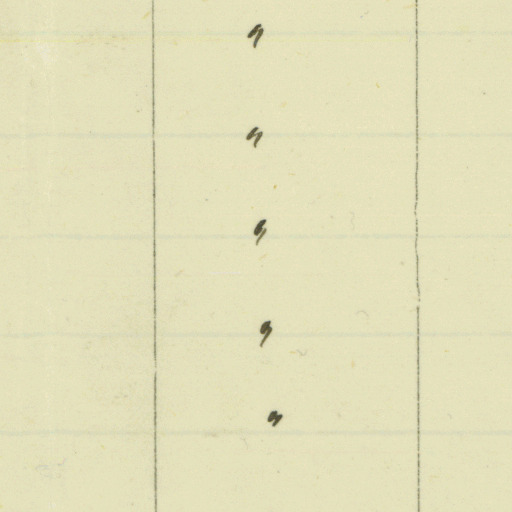 "
"
"
"
"